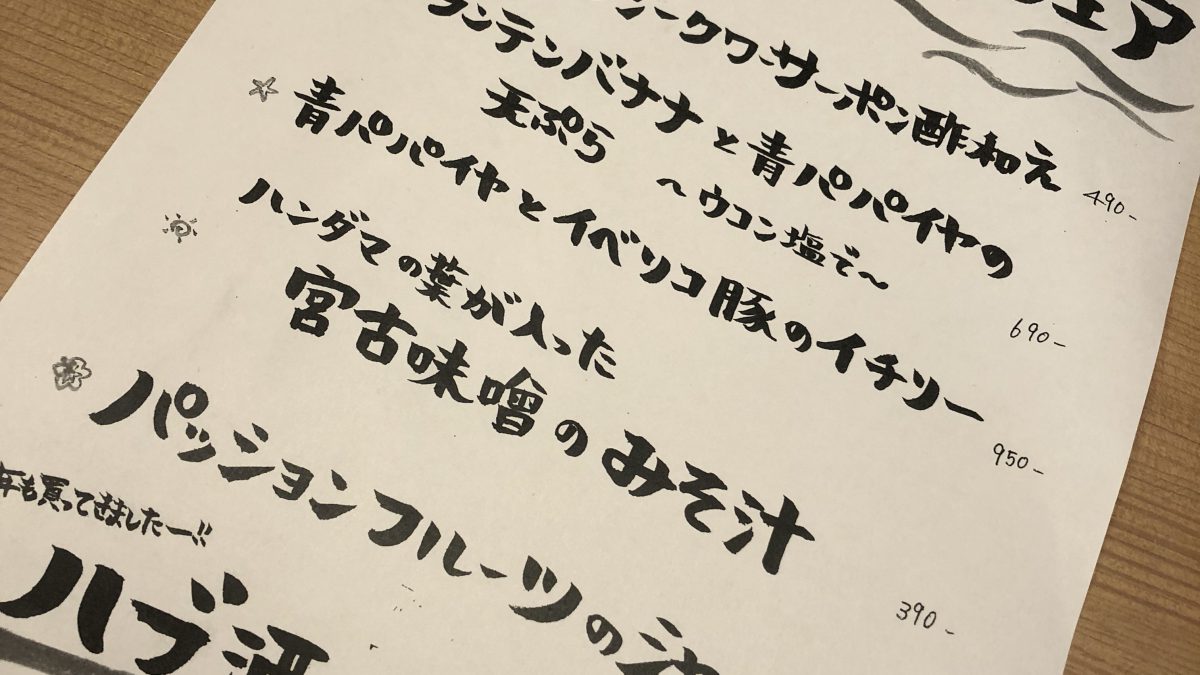 ェア
ークワーサーポン酢和え 490-
ランテンバナナと青パパイヤの
天ぷら ~ウコン塩で~ 690-
青パパイヤとイベリコ豚のイチリー 950-
ハンダマの葉が入った
宮古味噌のみそ汁 390-
パッションフルーツの
年も買ってきましたー!!
ハブ酒